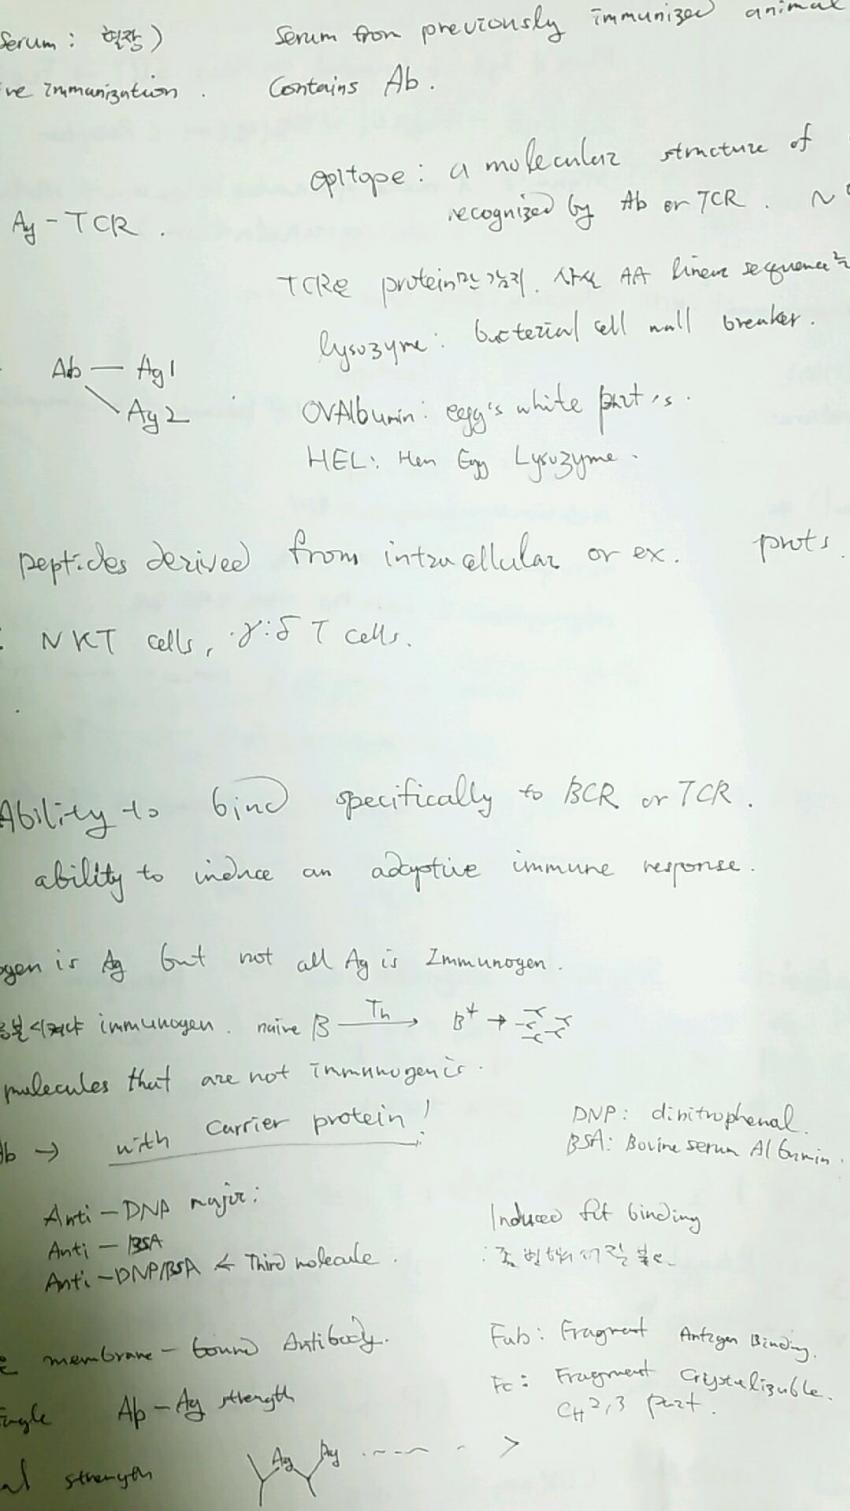 Serum : 혈장)
Serum from previously immunized animal
ve Immunization .
Contains Ab .
epitope : a molecular structure of
recognized by Ab or TCR . ~
Ag - TCR .
TCR은 protein만 감지. 사실 AA linear sequence를
lysozyme : bacterial cell wall breaker .
Ab — Ag1
Ag2
OVAlbumin : eegg's white
HEL : Hen Egg Lysozyme .
peptides derived from intracellular or ex . prots .
: NKT cells, γ:δ T cells.
Ability to bind specifically to BCR or TCR .
ability to induce an adaptive immune response .
ogen is Ag but not all Ag is Immunogen .
immunogen . naive B Th → B* →
molecules that are not immunogenis .
Ab → with carrier protein!
DNP : dinitrophenal .
BSA : Bovine serum Albumin .
Anti - DNP major :
Anti - BSA
Anti - DNP/BSA < Third molecule .
Induced fit binding
membrane - bound Antibody.
Fab : Fragment Antigen Binding.
Fc : Fragment Crystalizable.
CH2,3 part .
ingle Ab - Ag strength
al strength
Ag Ag ---- - >